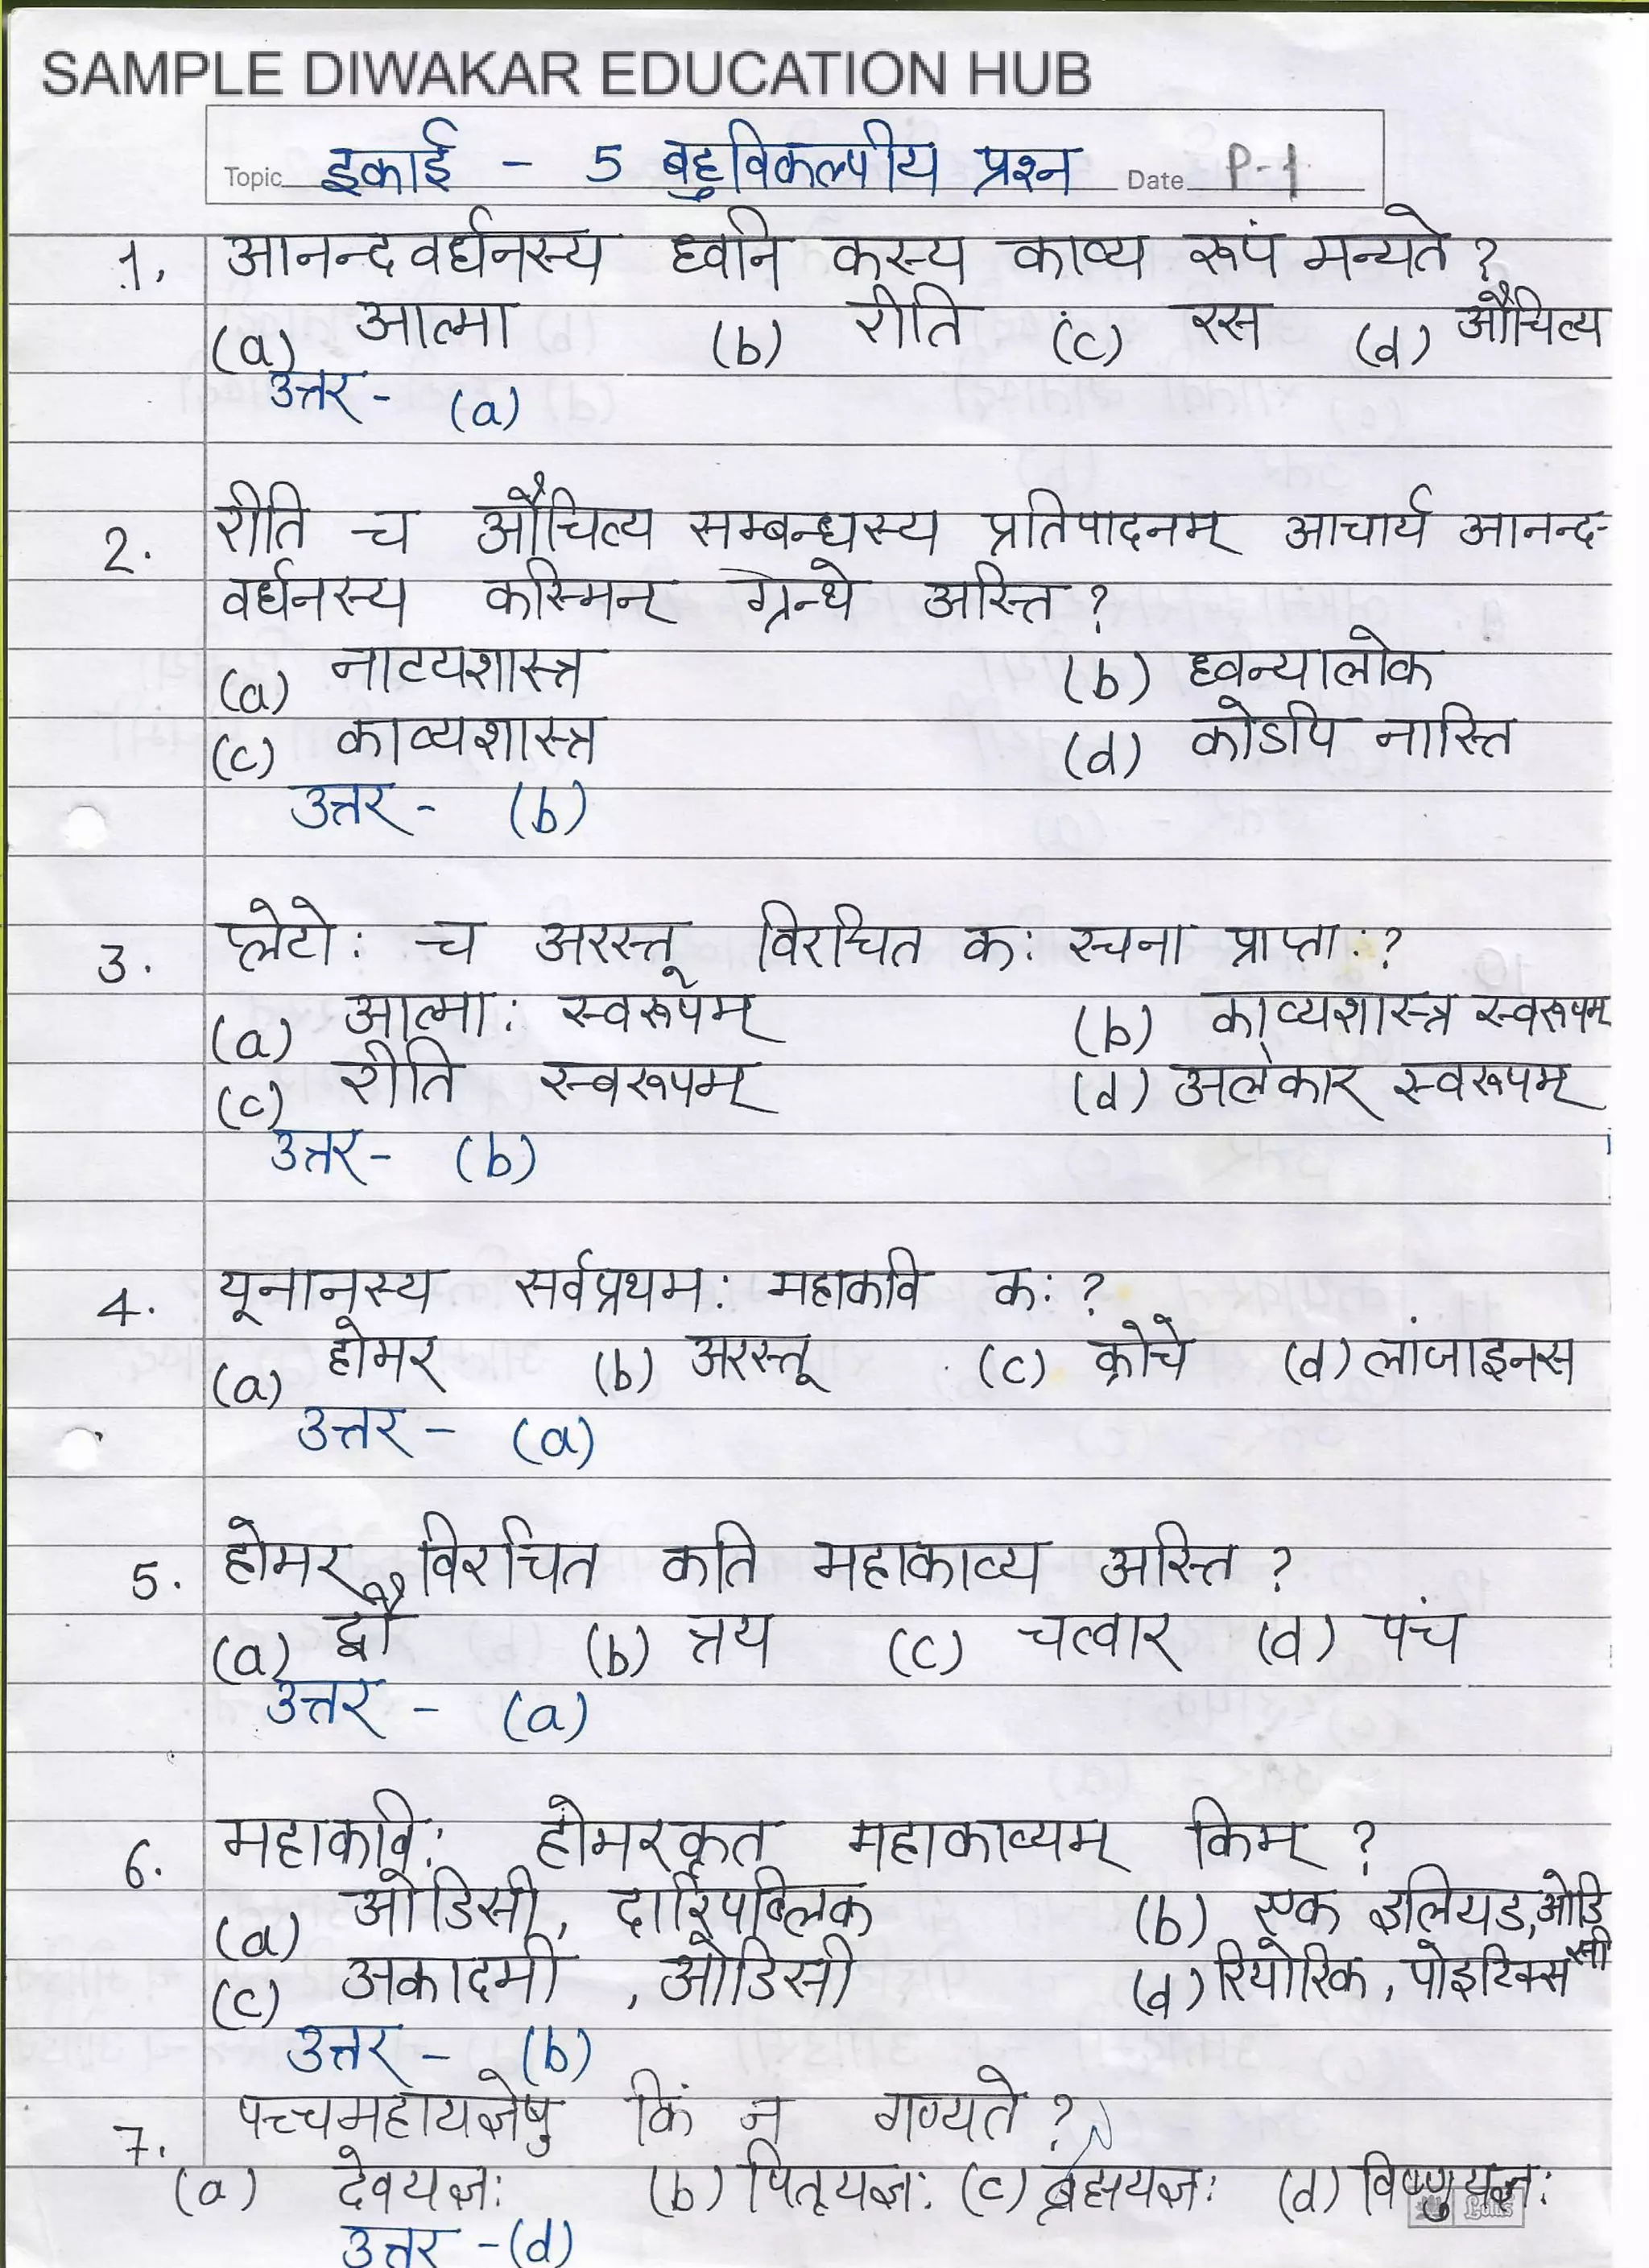 SAMPLE DIWAKAR EDUCATION HUB
Topic इकाई - 5 बहुविकल्पीय प्रश्न Date P-1
1. आनन्दवर्धनस्य ध्वनि कस्य काव्य रूपं मन्यते ?
(a) आत्मा (b) रीति (c) रस (d) औचित्य
उत्तर - (a)
2. रीति च औचित्य सम्बन्धस्य प्रतिपादनम् आचार्य आनन्द-
वर्धनस्य कस्मिन् ग्रन्थे अस्ति ?
(a) नाटयशास्त्र (b) ध्वन्यालोक
(c) काव्यशास्त्र (d) कोऽपि नास्ति
उत्तर - (b)
3. प्लेटो: च अरस्तू विरचित क: रचना प्राप्ता: ?
(a) आत्मा: स्वरूपम् (b) काव्यशास्त्र स्वरूपम्
(c) रीति स्वरूपम् (d) अलंकार स्वरूपम्
उत्तर - (b)
4. यूनानस्य सर्वप्रथम: महाकवि क: ?
(a) होमर (b) अरस्तू (c) क्रोचे (d) लांजाइनस
उत्तर - (a)
5. होमर विरचित कति महाकाव्य अस्ति ?
(a) द्वौ (b) त्रय (c) चत्वार (d) पंच
उत्तर - (a)
6. महाकवि: होमरकृत महाकाव्यम् किम् ?
(a) ओडिसी, दारिपब्लिक (b) एक इलियड, ओडिसी
(c) अकादमी , ओडिसी (d) रियोरिक, पोइटिक्स
उत्तर - (b)
7. पच्चमहायज्ञेषु किं न गण्यते ?
(a) देवयज्ञ: (b) पितृयज्ञ: (c) ब्रह्मयज्ञ: (d) विष्णुयज्ञ:
उत्तर - (d)
Lotus